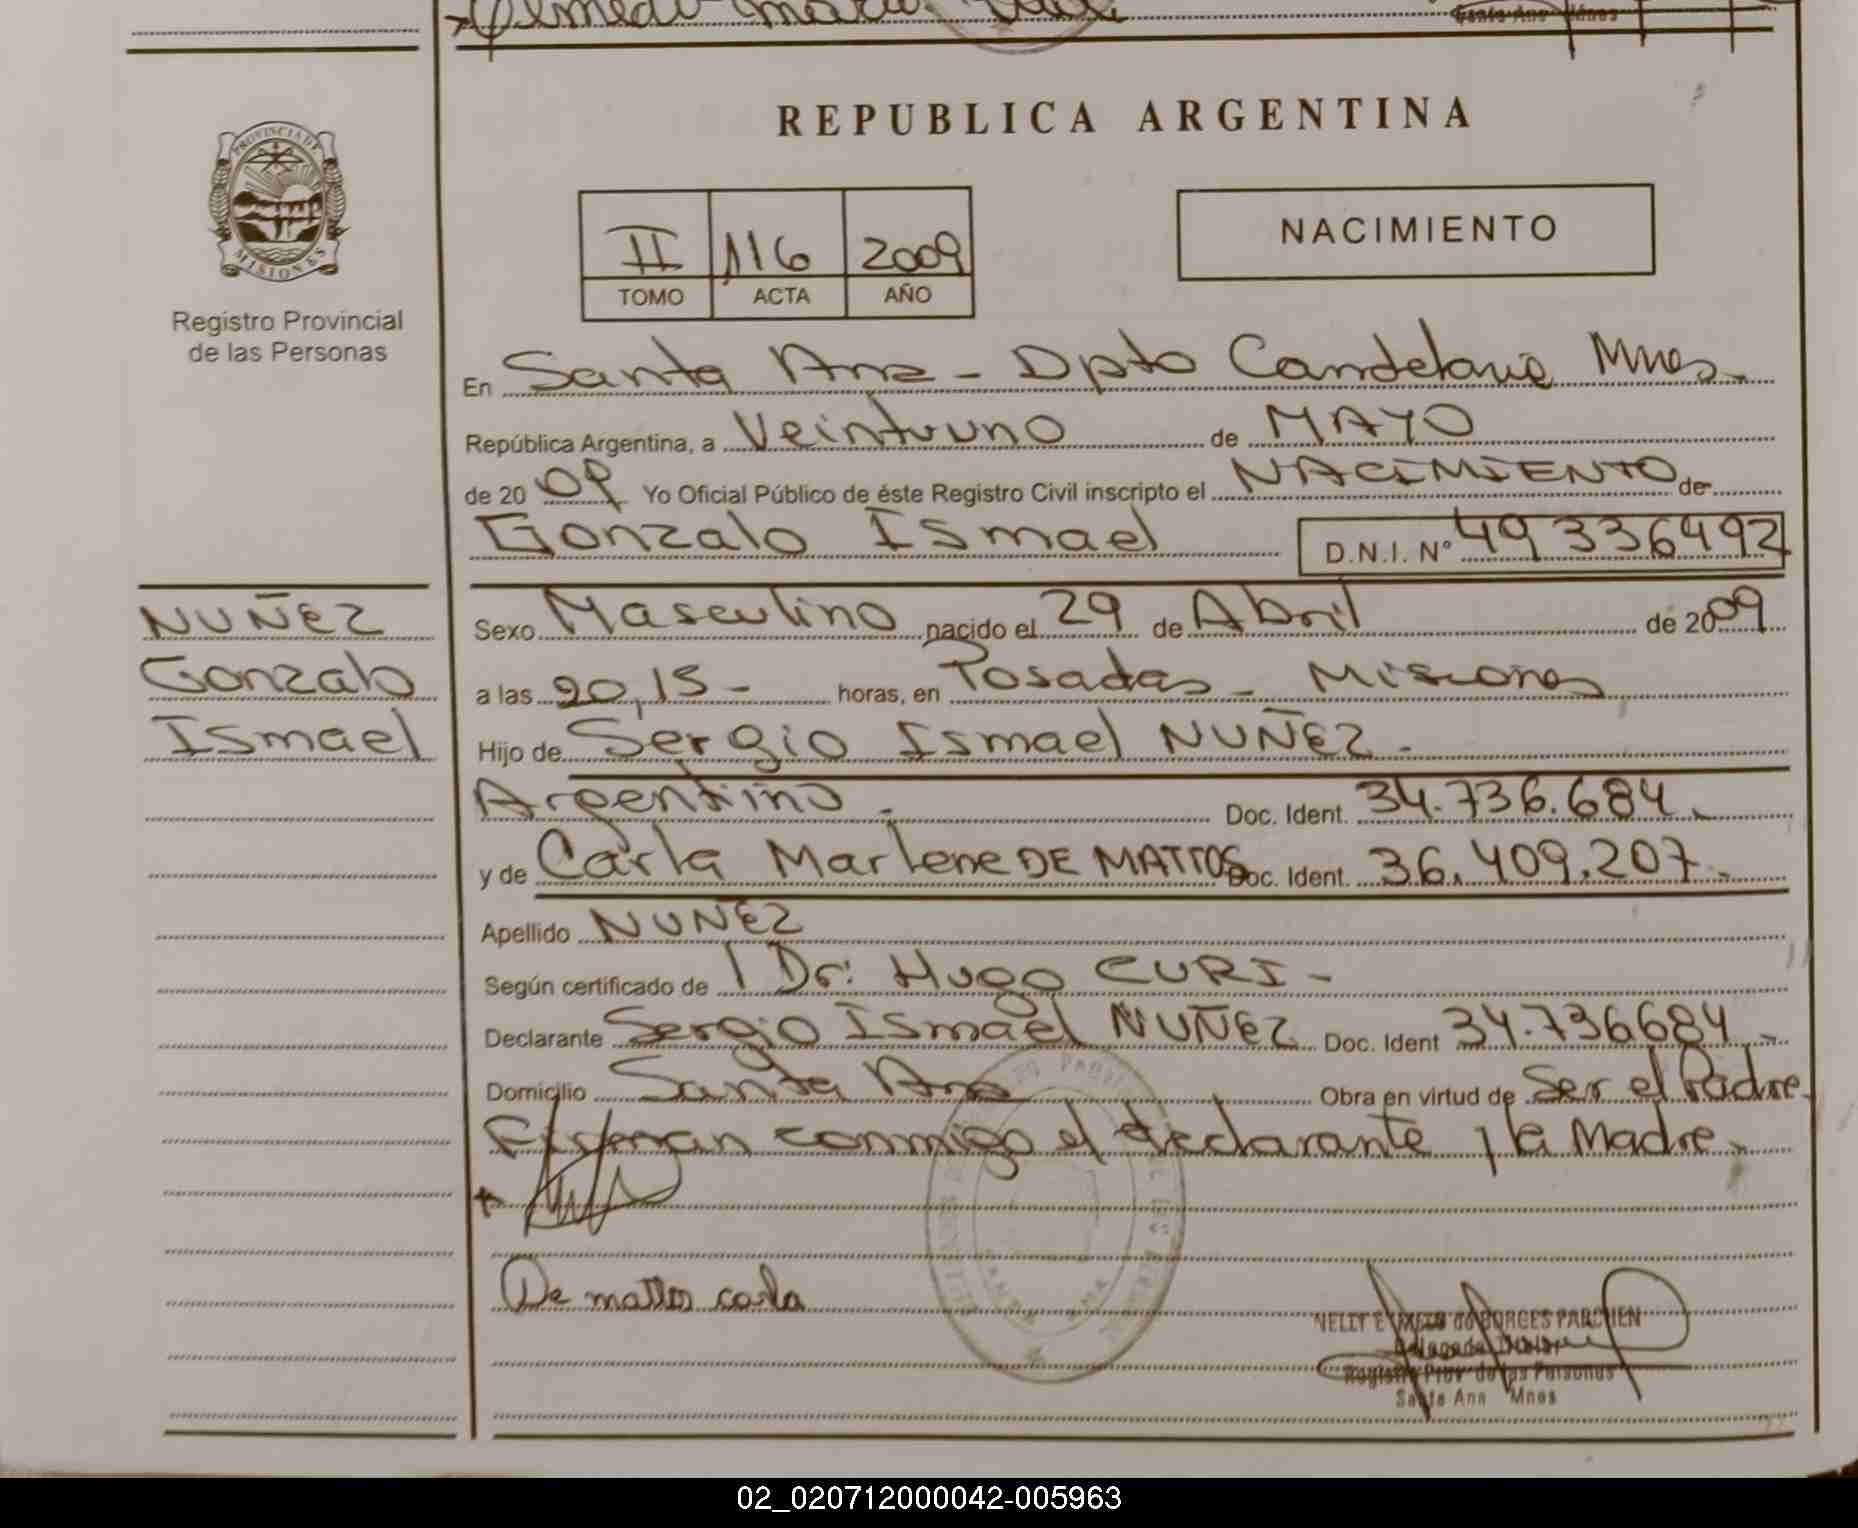 Santa Ana Mnes
REPUBLICA ARGENTINA
PROVINCIA DE
MISIONES
Registro Provincial
de las Personas
II 116 2009
TOMO ACTA AÑO
NACIMIENTO
En Santa Ana - Dpto Candelaria Mnes.
República Argentina, a Veintiuno de MAYO
de 20 09 Yo Oficial Público de éste Registro Civil inscripto el NACIMIENTO de
Gonzalo Ismael D.N.I. N° 49336492
NUÑEZ
Gonzalo
Ismael
Sexo Masculino nacido el 29 de Abril de 2009
a las 20,15 - horas, en Posadas - Misiones
Hijo de Sergio Ismael NUÑEZ -
Argentino . Doc. Ident. 34.736.684 .
y de Carla Marlene DE MATTOS Doc. Ident. 36.409.207 .
Apellido NUÑEZ
Según certificado de Dr: Hugo CURI -
Declarante Sergio Ismael NUÑEZ Doc. Ident 34.736684 .
Domicilio Santa Ana Obra en virtud de Ser el Padre
Firman conmigo el declarante y la Madre.
De mattos carla
NELLY E de BORGES PARCHEN
Delegada Titular
Registro Prov de las Personas
Santa Ana Mnes
02_020712000042-005963